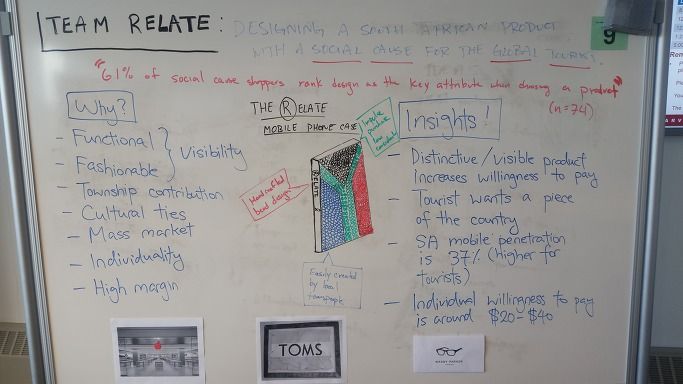 TEAM RELATE: DESIGNING A SOUTH AFRICAN PRODUCT
WITH A SOCIAL CAUSE FOR THE GLOBAL TOURIST.
9
"61% of social cause shoppers rank design as the key attribute when choosing a product"
(n=74)
Why?
- Functional
- Fashionable
} Visibility
- Township contribution
- Cultural ties
- Mass market
- Individuality
- High margin
THE RELATE
MOBILE PHONE CASE
Impulse
purchase
low
Handcrafted
bead design
RELATE
Easily created
by local
townspeople
Insights!
- Distinctive/visible product
Increases willingness to pay
- Tourist wants a piece
of the country
- SA mobile penetration
is 37% (higher for
tourists)
- Individual willingness to pay
is around $20-$40
TOMS
WARBY PARKER